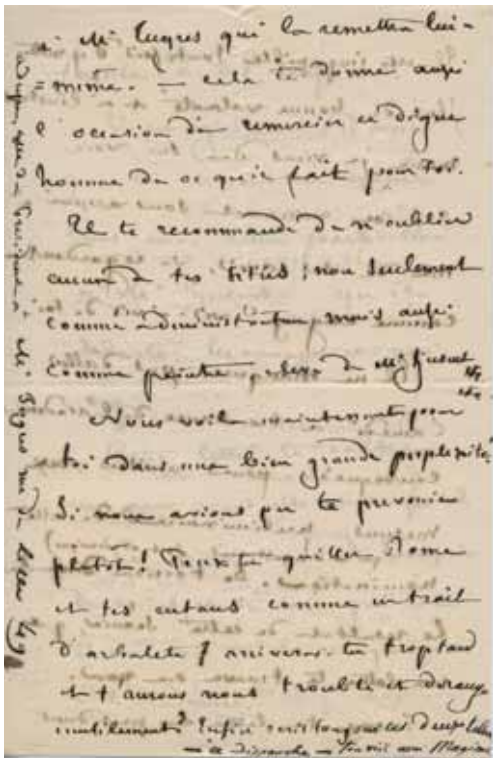 à Mr Ingres qui la remettra lui-
= même. — cela te donne aussi
l'occasion de remercier ce digne
homme de ce qu'il fait pour toi.
Il te recommande de n'oublier
aucun de tes titres; non seulement
comme administrateur, mais aussi
comme peintre, élève de Mr
Nous voilà maintenant pour
toi dans une bien grande perplexité
Si nous avions pu te prévenir
plutôt! Peux tu quitter Rome
et tes enfans comme un trait
d'arbalete / arriveras-tu trop tard
et t'aurons nous troublé et dérangé
inutilement? Enfin les deux
ce dimanche —
à Mr Ingres rue de Lille 49